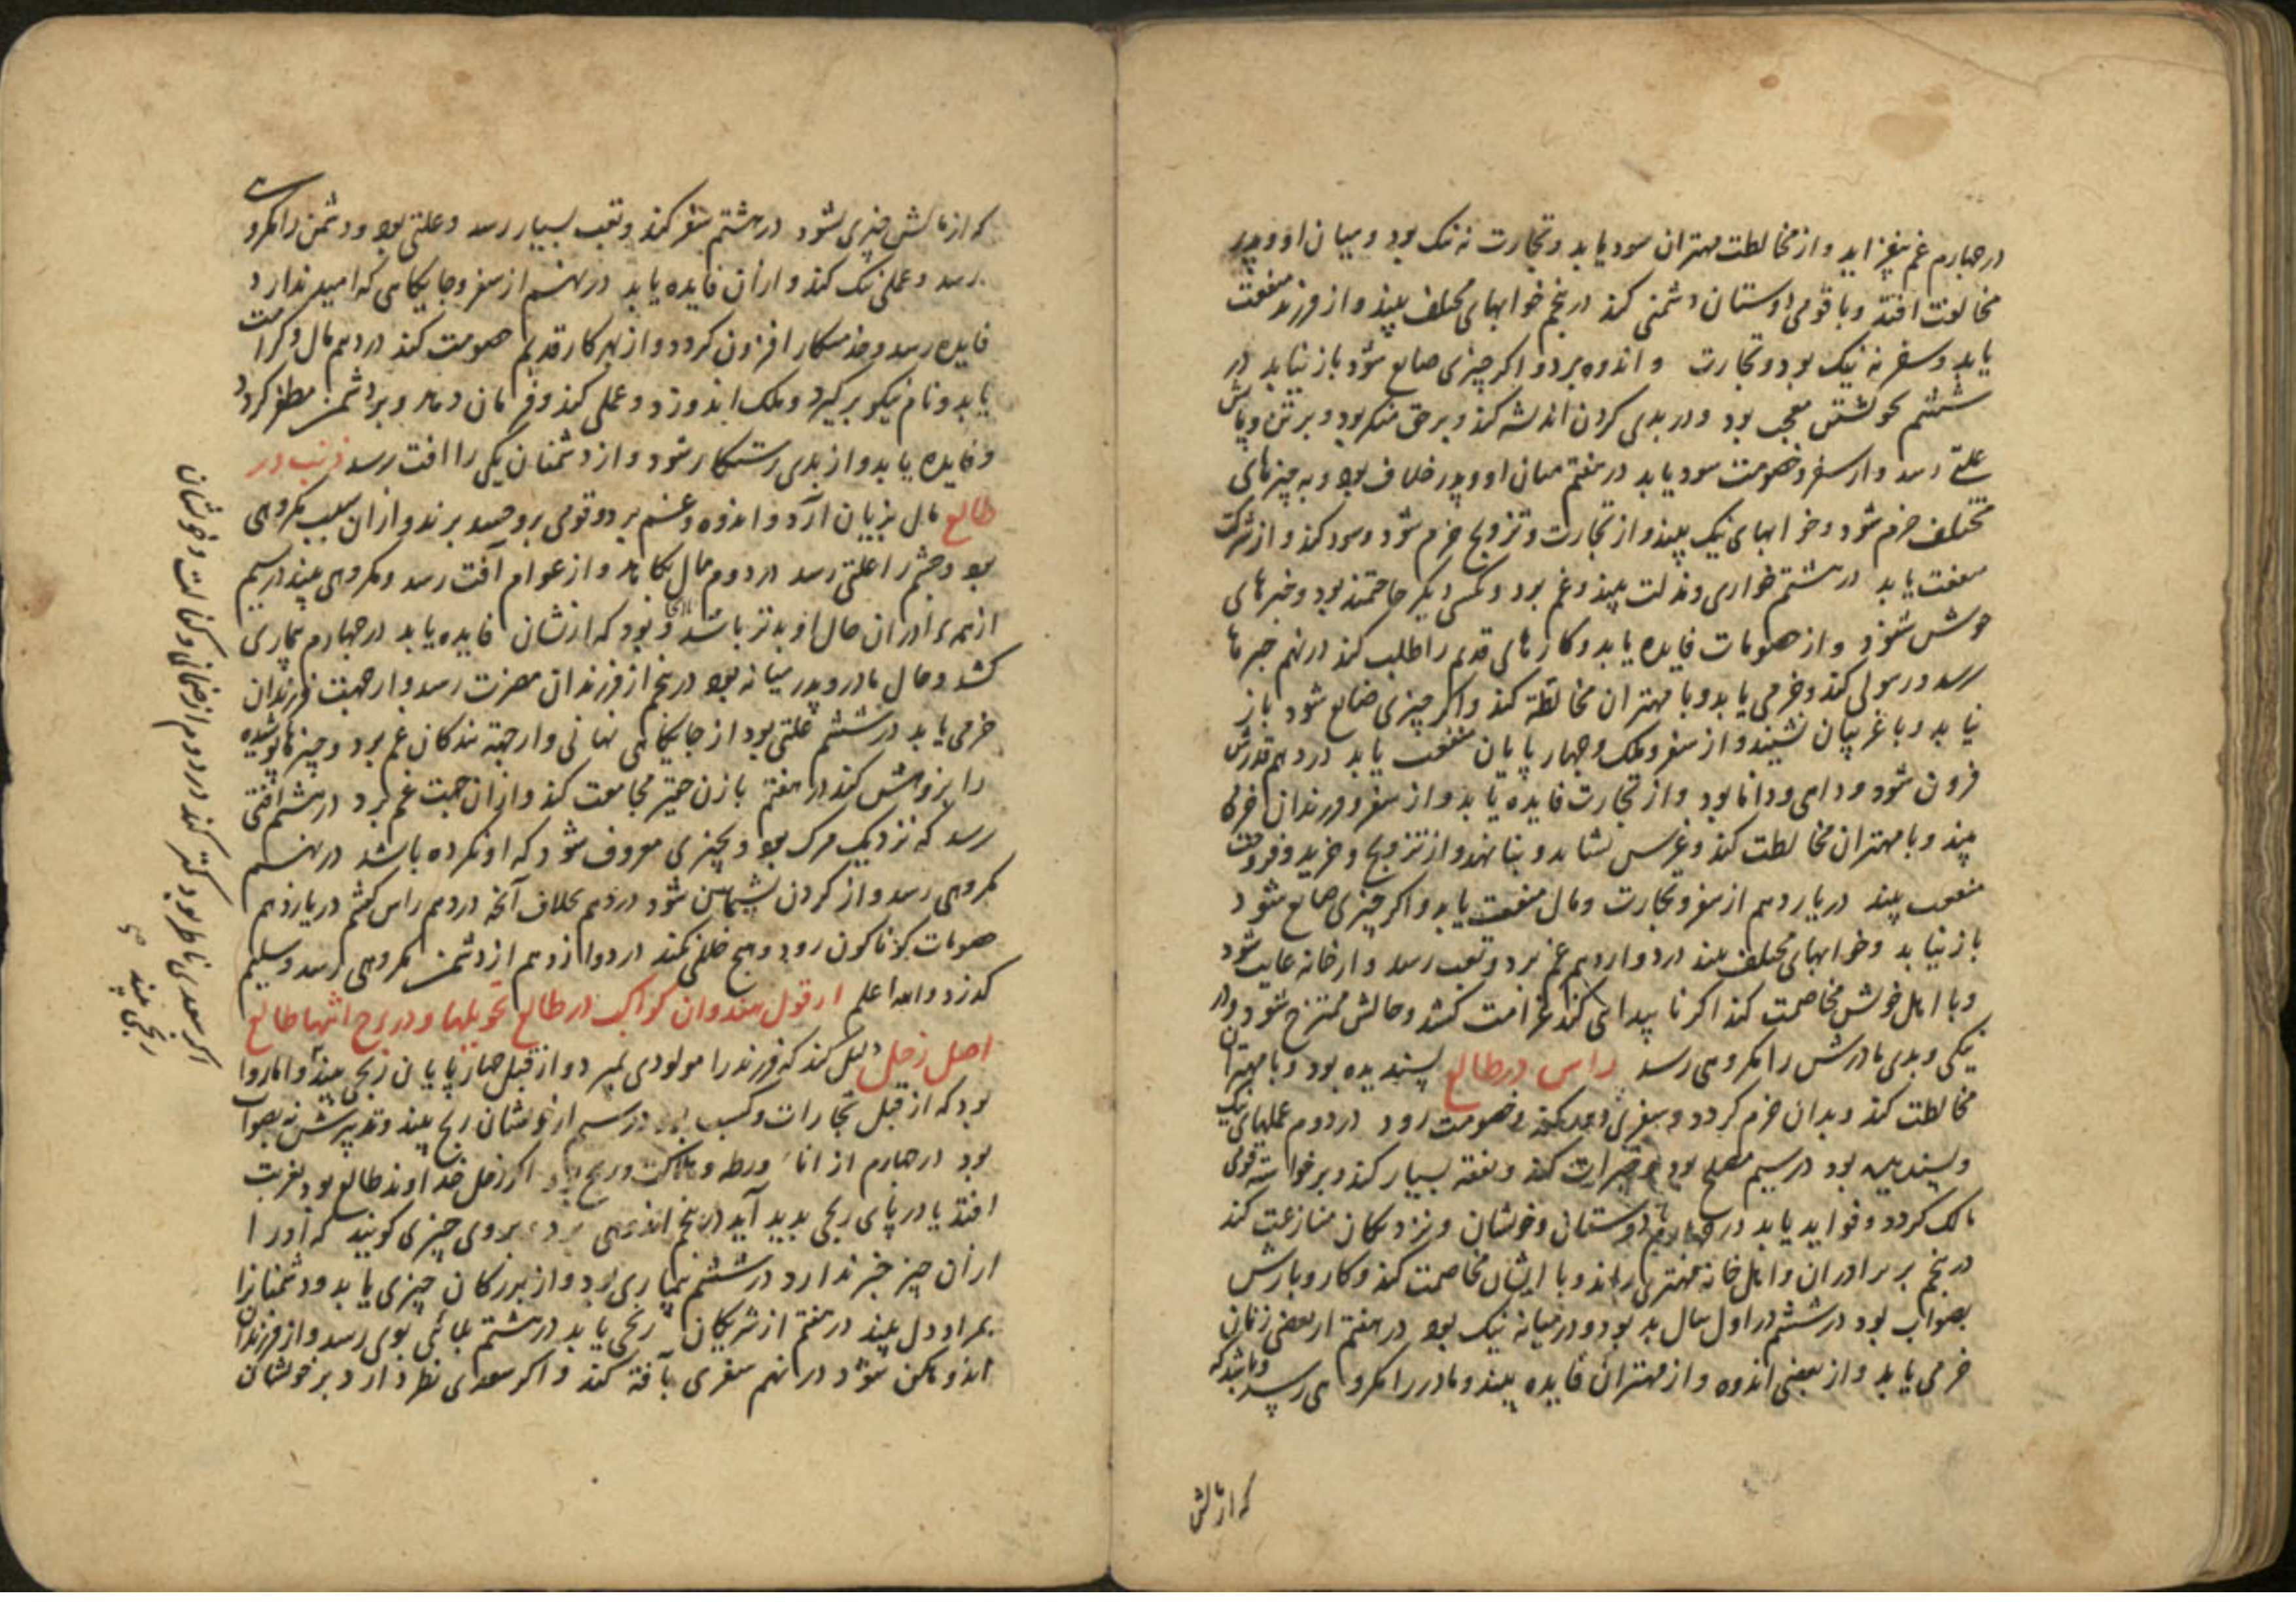 در چهارم غم بیفزاید و از مخالطت مهتران سود یابد و تجارت نه نیک بود و میان او و پدر
مخالفت افتد و با قومی دوستان دشمنی کند در پنجم خوابهای مختلف بیند و از فرزند منفعت
یابد و سفر نه نیک بود و تجارت و اندوه برد و اکر چیزی ضایع شود باز نیابد در
ششم بخویشتن معجب بود و در بدی کردن اندیشه کند و بر حق منکر بود و بر تن و پایش
علتی رسد و از سفر و خصومت سود یابد در هفتم میان او و پدر خلاف بود و به چیزهای
مختلف خرم شود و خوابهای نیک بیند و از تجارت و تزویج خرم شود و سود کند و از شرکت
منفعت یابد در هشتم خواری و مذلت بیند و غم برد و بکسی دیکر حاجتمند بود و خبرهای
خوش شنود و از خصومات فایده یابد و کارهای قدیم را طلب کند در نهم خبرها
رسد و رسولی کند و خرمی یابد و با مهتران مخالطة کند و اکر چیزی ضایع شود باز
نیابد و با غریبان نشیند و از سفر و ملک و چهارپایان منفعت یابد در دهم قدرش
فزون شود و داهی و دانا بود و از تجارت فایده یابد و از سفر و فرزندان خرمی
بیند و با مهتران مخالطت کند و غرس نشاند و بنا نهد و از تزویج و خرید و فروخت
منفعت بیند در یازدهم از سفر و تجارت و مال منفعت یابد و اکر چیزی ضایع شود
باز نیابد و خوابهای مختلف بیند در دوازدهم غم برد و تعب رسد و از خانه غایب شود
و با اهل خویش مخاصمت کند اکر نا پیدایی کند غرامت کشد و حالش ممتزج شود و در
نیکی و بدی مادرش را مکروهی رسد راس در طالع پسندیده بود و با مهتران
مخالطت کند و بدان خرم کردد و سفری کند و خصومت رود در دوم عملهای نیک
و پسندیده بود در سیم مصلح بود و خیرات کند و نفقه بسیار کند و بر خواسته قوی
مالک کردد و فواید یابد در چهارم با دوستان و خویشان و نزدیکان منازعت کند
در پنجم بر برادران و اهل خانه مهتری راند و با ایشان مخاصمت کند و کار و بارش
بصواب بود در ششم در اول سال بد بود و در میانه نیک بود در هفتم از بعضی زنان
خرمی یابد و از بعضی اندوه و از مهتران فایده بیند و مادر را مکروهی رسد و باشد که
که از مالش
که از مالش چیزی بشود در هشتم سفر کند و تعب بسیار رسد و علتی بود و دشمن را مکروهی
رسد و عملی نیک کند و از آن فایده یابد در نهم از سفر و جایکاهی که امید ندارد
فایده رسد و خدمتکار افزون کردد و از بهر کار قدیم خصومت کند در دهم مال و کرامت
یابد و نام نیکو بر کیرد و ملک اندوزد و عملی کند و فرمان دهد و بر دشمن مظفر کردد
و فایده یابد و از بدی رستکار شود و از دشمنان یکی را افت رسد ذنب در
طالع مال بزیان آرد و اندوه و غم برد و قومی برو حسد برند و از آن سبب مکروهی
بود و چشم را علتی رسد در دوم مال بکاهد و از عوام آفت رسد و مکروهی بیند در سیم
از همه برادران حال او بدتر باشد و بود که ازیشان فایده یابد در چهارم بیماری
کشد و حال مادر و پدر میانه بود در پنجم از فرزندان مضرت رسد و از جهت فرزندان
خرمی یابد در ششم علتی بود از جایکاهی نهانی و از جهة بندکان غم برد و چیزهای پوشیده
را پژوهش کند در هفتم با زن حقیر مجامعت کند و از آن جهت غم برد در هشتم آفتی
رسد که نزدیک مرک بود و بچیزی معروف شود که او نکرده باشد در نهم
مکروهی رسد و از کردن پشیمان شود در دهم بخلاف آنچه در دهم راس کفتم در یازدهم
خصومات کوناکون رود و هیچ خللی نکند در دوازدهم از دشمن مکروهی رسد و سلیم
کذرد والله اعلم از قول هندوان کواکب در طالع تحویلها و در برج انتها طالع
اصل زحل دلیل کند که فرزند را مولودی بمیرد و از قبل چهارپایان رنجی بیند و اما روا
بود که از قبل تجارات و کسب بود در سیم از خویشان رنج بیند و تدبیرش نه بصواب
بود در چهارم از ورطه و هلاکت و رنج بود اکر زحل خداوند طالع بود بغربت
افتد یا در پای رنجی بدید آید در پنجم اندوهی برد و بر وی چیزی کویند که او را
از آن چیز خبر ندارد در ششم بیماری بود و از بزرکان چیزی یابد و دشمنانرا
بمراد دل بیند در هفتم از شریکان رنجی یابد در هشتم بلائی بوی رسد و از فرزندان
اندوهکن شود در نهم سفری با آفة کند و اکر سعدی نظر دارد بر خویشان
اکر سعدی ناظر بود
رنجی بیند